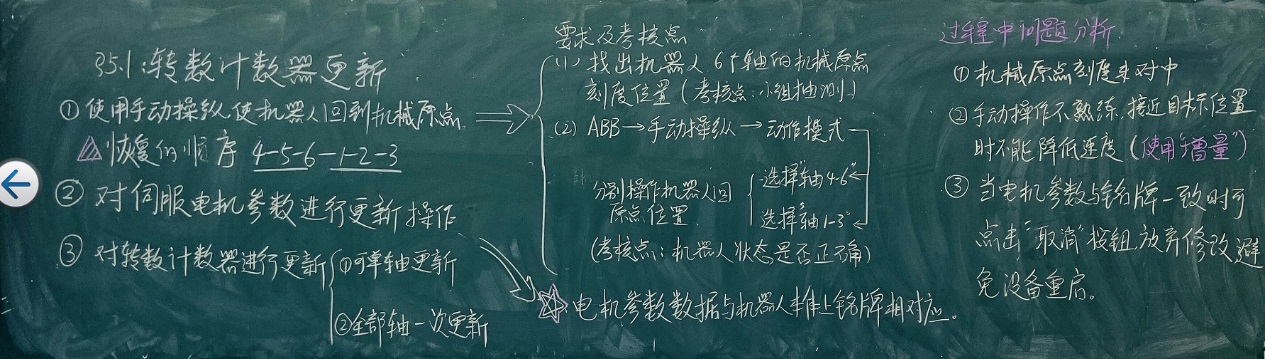 3.5.1:转数计数器更新
①使用手动操纵使机器人回到机械原点.
△恢复的顺序 4-5-6-1-2-3
②对伺服电机参数进行更新操作
③对转数计数器进行更新
①可单轴更新
②全部轴一次更新
要求及考核点
(1)找出机器人6个轴的机械原点
刻度位置(考核点:小组抽测)
(2)ABB→手动操纵→动作模式
分别操作机器人回
原点位置.
选择轴4-6
选择轴1-3
(考核点:机器人状态是否正确)
☆电机参数数据与机器人本体上铭牌相对应。
过程中问题分析
①机械原点刻度未对中
②手动操作不熟练.接近目标位置
时不能降低速度("使用增量")
③当电机参数与铭牌一致时可
点击"取消"按钮.放弃修改.避
免设备重启。